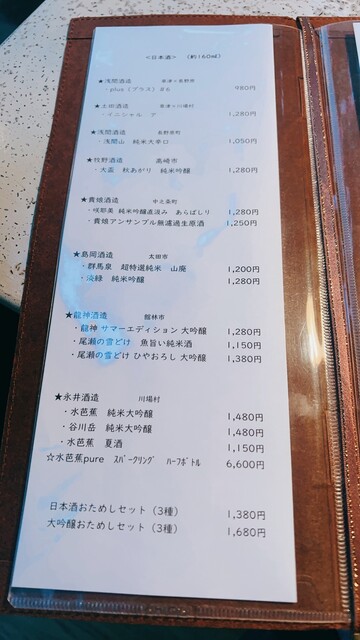 <日本酒> (約160㎖)
★浅間酒造
・plus（プラス）＃6 980円
★土田酒造 川場村
・イニシャル 1,280円
★浅間酒造 長野原町
・浅間山 純米大辛口 1,050円
★牧野酒造 高崎市
・大盃 秋あがり 純米吟醸 1,280円
★貴娘酒造 中之条町
・咲耶美 純米吟醸直汲み あらばしり 1,280円
・貴娘アンサンブル無濾過生原酒 1,250円
★島岡酒造 太田市
・群馬泉 超特選純米 山廃 1,200円
・淡緑 純米吟醸 1,280円
★龍神酒造 館林市
・龍神 サマーエディション 大吟醸 1,280円
・尾瀬の雪どけ 魚旨い純米酒 1,150円
・尾瀬の雪どけ ひやおろし 大吟醸 1,380円
★永井酒造 川場村
・水芭蕉 純米大吟醸 1,480円
・谷川岳 純米大吟醸 1,480円
・水芭蕉 夏酒 1,150円
☆水芭蕉pure ｽﾊﾟｰｸﾘﾝｸﾞ ﾊｰﾌﾎﾞﾄﾙ 6,600円
日本酒おためしセット（3種） 1,380円
大吟醸おためしセット（3種） 1,680円